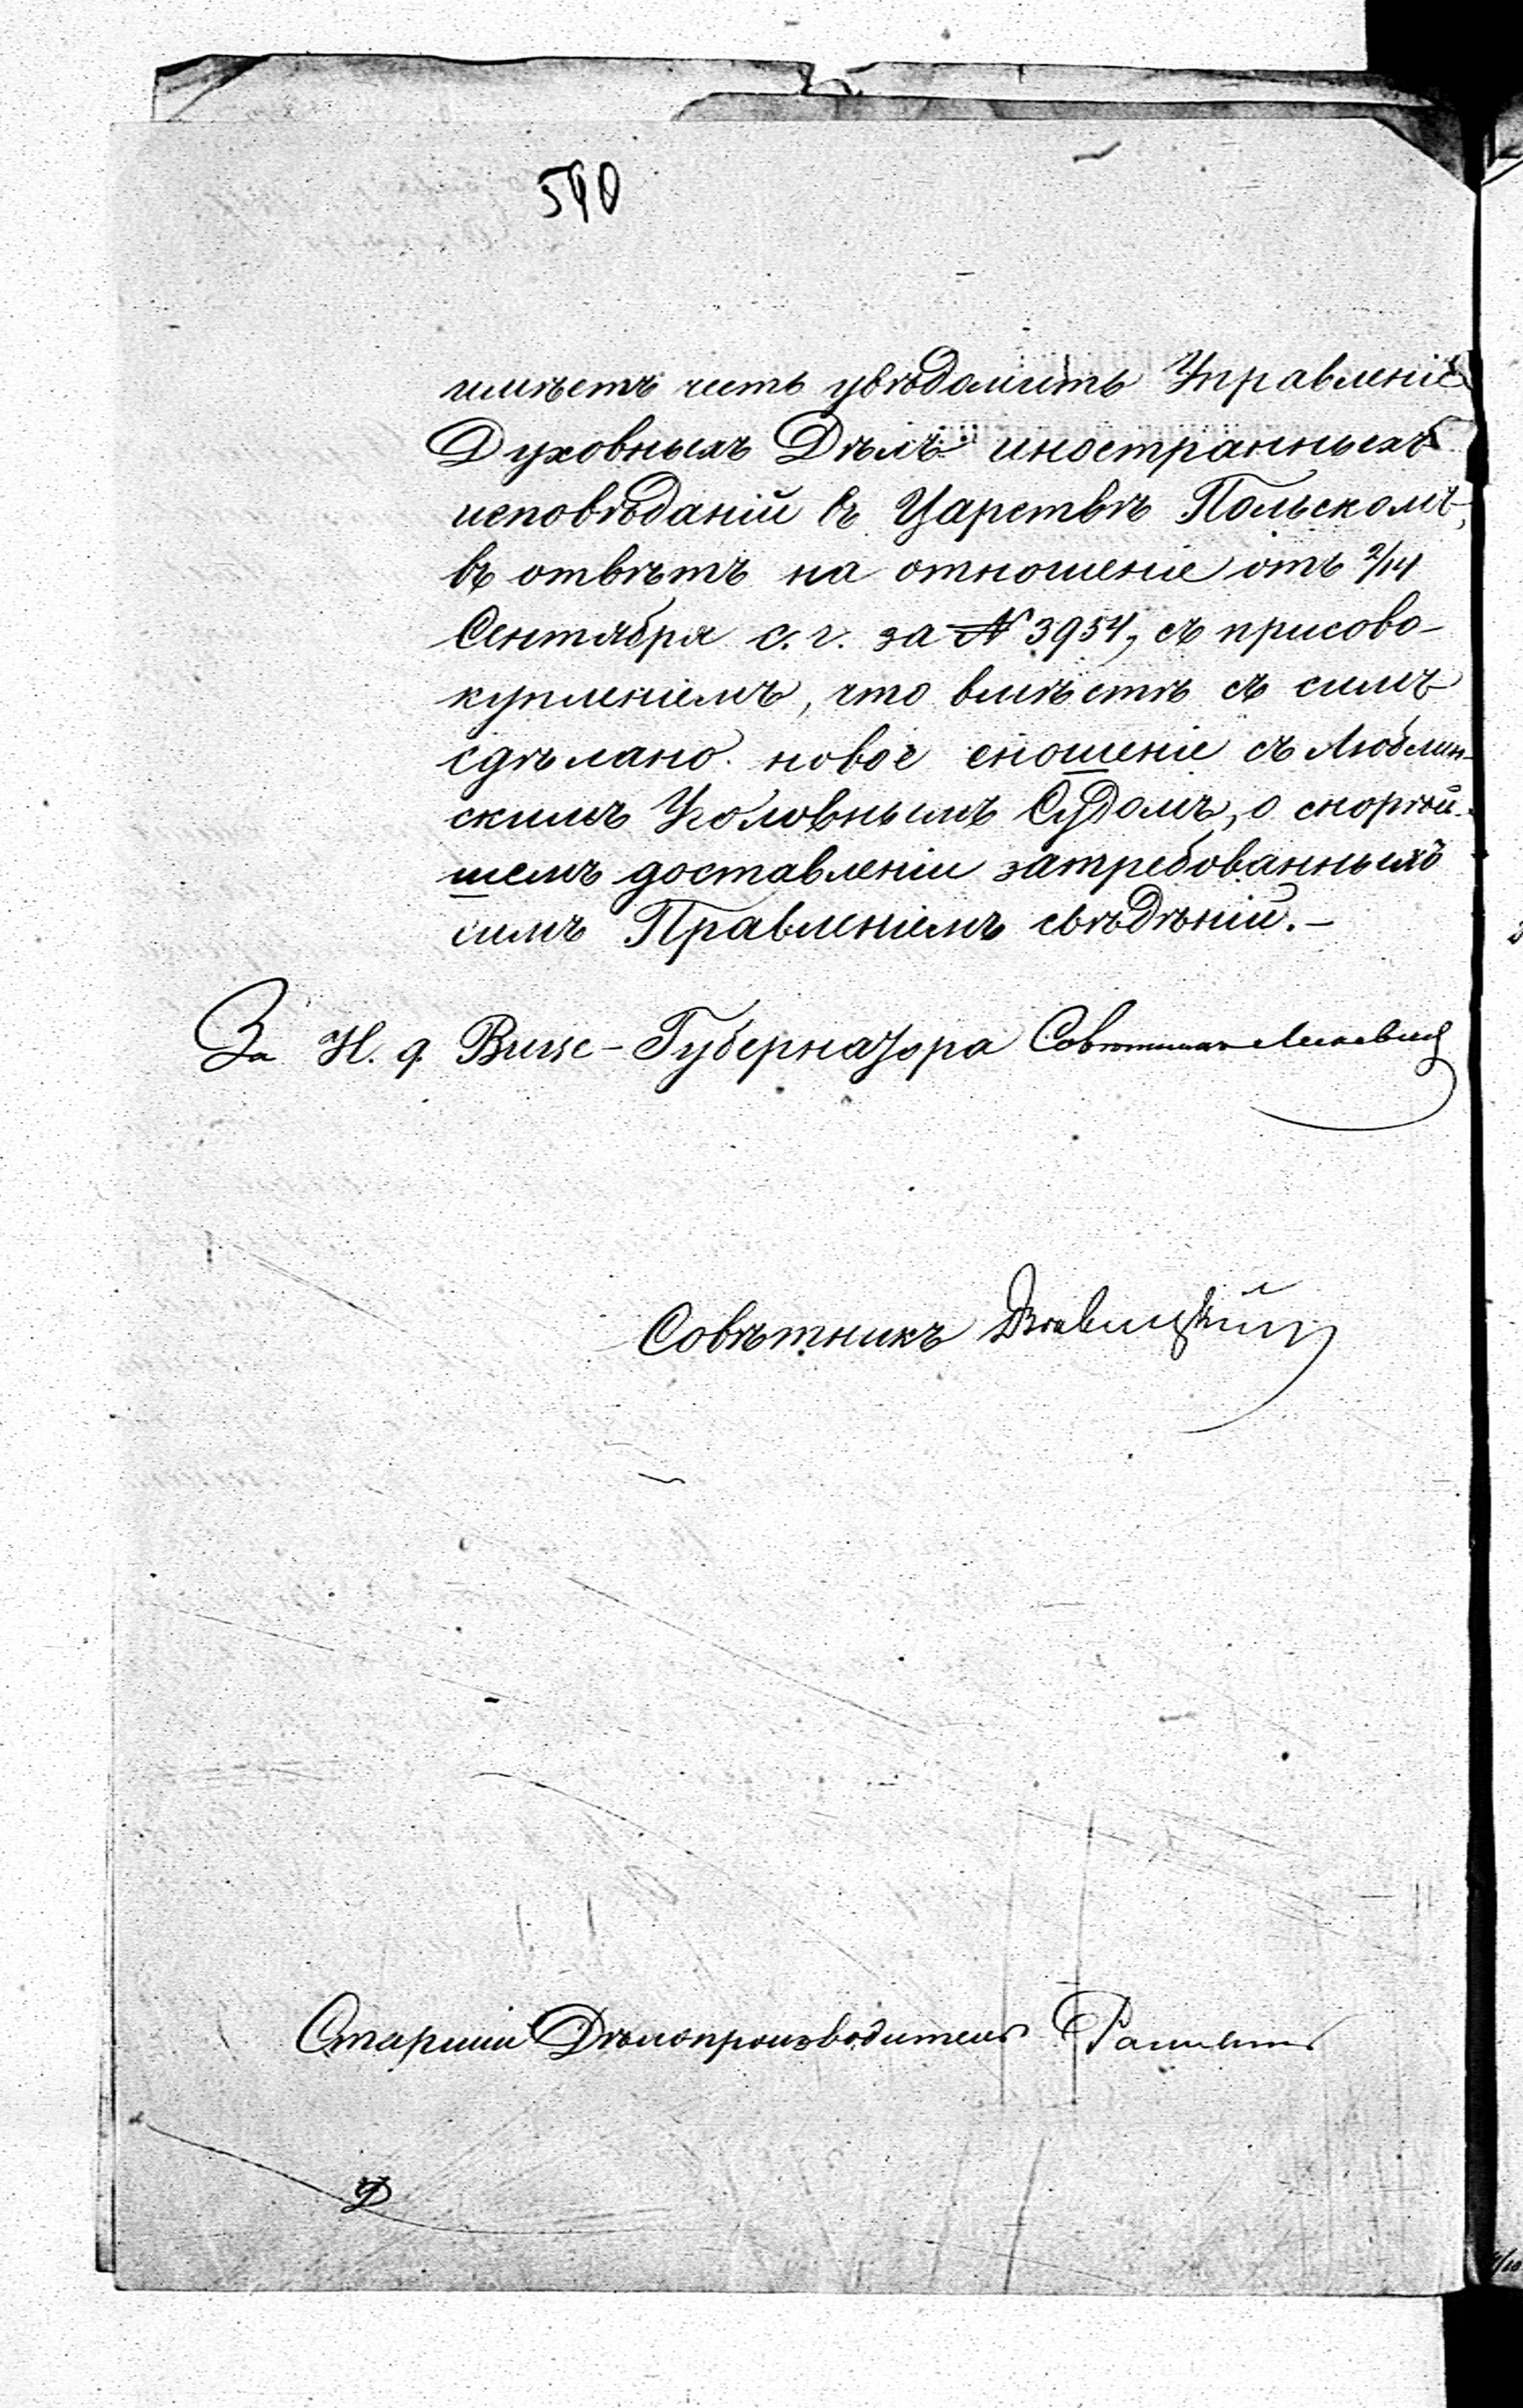 590
имѣетъ честь увѣдомить Управленіе
Духовныхъ Дѣлъ иностранныхъ
исповѣданій въ Царствѣ Польскомъ,
въ отвѣтъ на отношеніе отъ 2/14
Сентября с. г. за № 3954, съ присово-
купленіемъ, что вмѣстѣ съ симъ
сдѣлано новое сношеніе съ Люблин-
скимъ Уголовнымъ Судомъ, о скорѣй-
шемъ доставленіи затребованныхъ
симъ Правленіемъ свѣдѣній.-
За И. д. Вице-Губернатора Совѣтникъ
Совѣтникъ
Старшій Дѣлопроизводитель